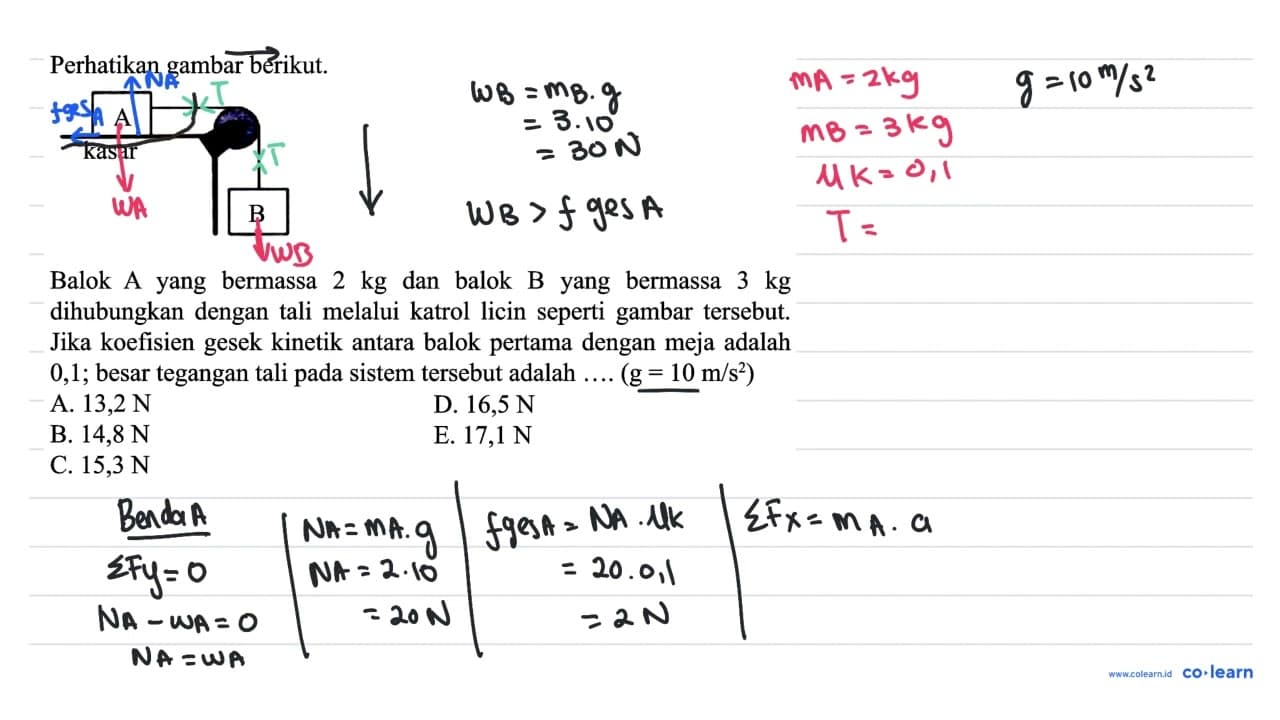 Perhatikan gambar berikut.
NA
T
fgesA
A
kasar
T
WA
B
WB
WB = mB . g
= 3.10
= 30 N
WB > f ges A
mA = 2kg
mB = 3kg
μk = 0,1
T =
g = 10 m/s²
Balok A yang bermassa 2 kg dan balok B yang bermassa 3 kg
dihubungkan dengan tali melalui katrol licin seperti gambar tersebut.
Jika koefisien gesek kinetik antara balok pertama dengan meja adalah
0,1; besar tegangan tali pada sistem tersebut adalah .... (g = 10 m/s²)
A. 13,2 N
B. 14,8 N
C. 15,3 N
D. 16,5 N
E. 17,1 N
Benda A
ΣFy = 0
NA - WA = 0
NA = WA
NA = mA. g
NA = 2.10
= 20 N
fgesA = NA . μk
= 20.0,1
= 2 N
ΣFx = mA. a
www.colearn.id co·learn